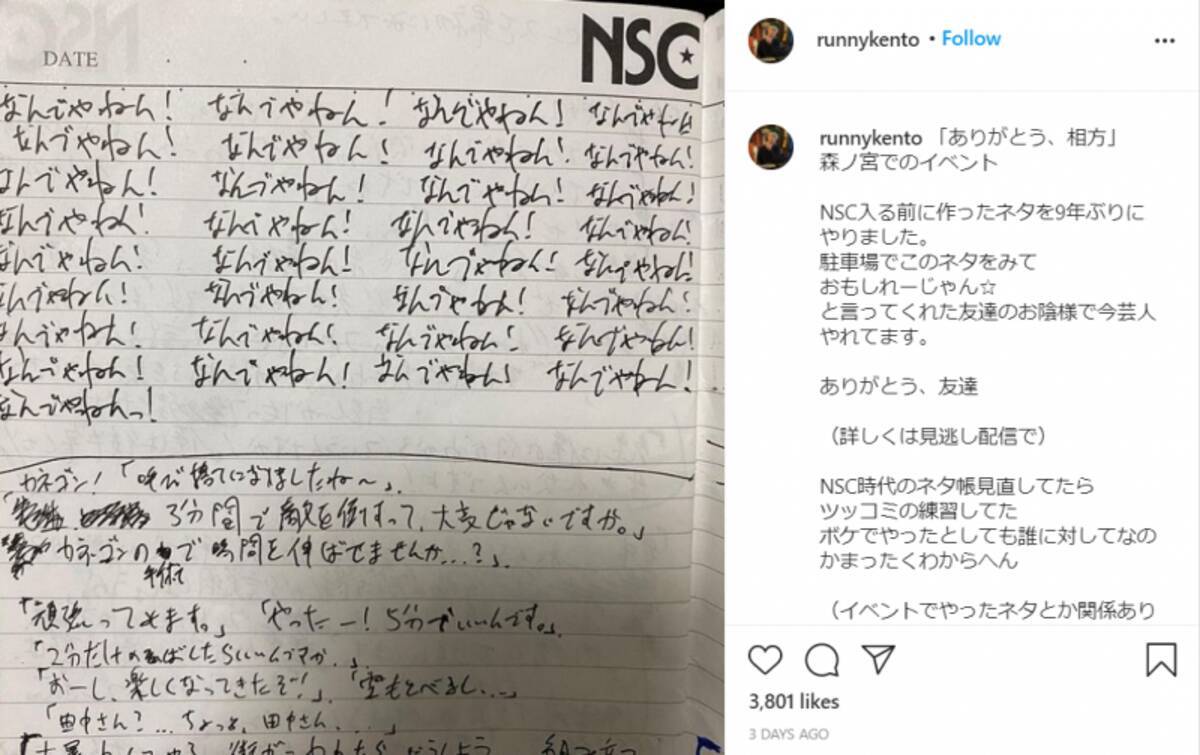 DATE
NSC
なんでやねん! なんでやねん! なんでやねん! なんでやねん!
なんでやねん! なんでやねん! なんでやねん! なんでやねん!
なんでやねん! なんでやねん! なんでやねん! なんでやねん!
なんでやねん! なんでやねん! なんでやねん! なんでやねん!
なんでやねん! なんでやねん! なんでやねん! なんでやねん!
なんでやねん! なんでやねん! なんでやねん! なんでやねん!
なんでやねん! なんでやねん! なんでやねん! なんでやねん!
なんでやねん! なんでやねん! なんでやねん! なんでやねん!
なんでやねんっ!
「カネゴン!「呼び捨てになりましたね〜」
3分間で敵を倒すって、大変じゃないですか。」
カネゴンの手術で時間を伸ばせませんか...?」
「頑張ってみます。」「やったー!5分でいいんです。」
「2分だけのばしたらいいんですか。」
「おーし、楽しくなってきたぞ!」「空もとべるし...」
「田中さん?...ちょっと、田中さん....」
runnykento • Follow
runnykento 「ありがとう、相方」
森ノ宮でのイベント
NSC入る前に作ったネタを9年ぶりに
やりました。
駐車場でこのネタをみて
おもしれーじゃん☆
と言ってくれた友達のお陰様で今芸人
やれてます。
ありがとう、友達
（詳しくは見逃し配信で）
NSC時代のネタ帳見直してたら
ツッコミの練習してた
ボケでやったとしても誰に対してなの
かまったくわからへん
（イベントでやったネタとか関係あり
3,801 likes
3 DAYS AGO